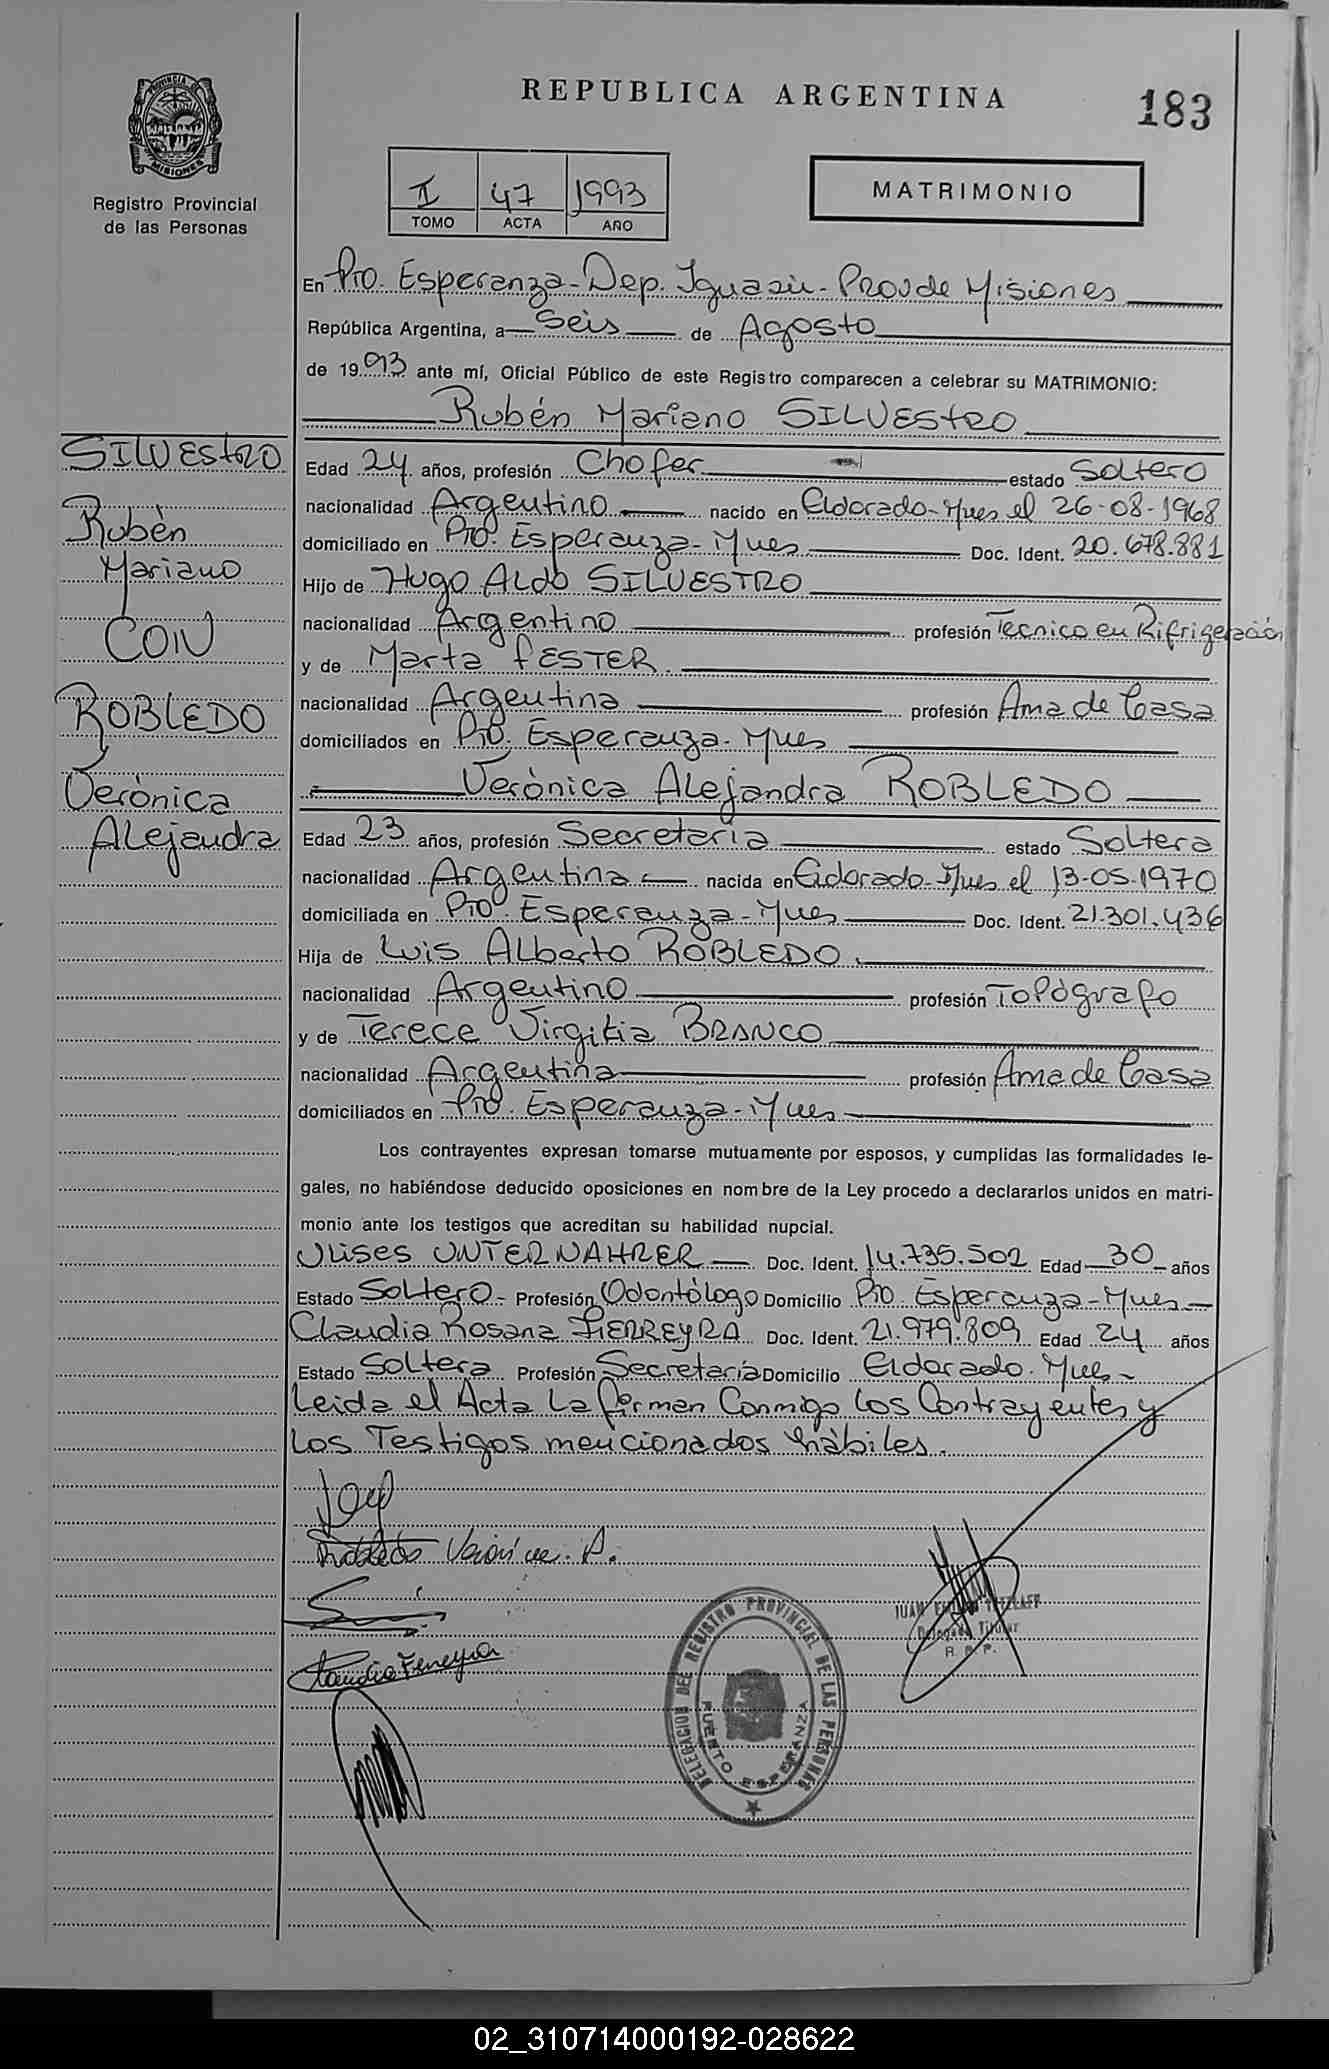 REPUBLICA ARGENTINA
183
PROVINCIA DE
MISIONES
Registro Provincial
de las Personas
I 47 1993
TOMO ACTA AÑO
MATRIMONIO
En Pto. Esperanza - Dep. Iguazú - Prov de Misiones
República Argentina, a Seis de Agosto
de 1993 ante mí, Oficial Público de este Registro comparecen a celebrar su MATRIMONIO:
Rubén Mariano SILVESTRO
SILVESTRO
Rubén
Mariano
CON
ROBLEDO
Verónica
Alejandra
Edad 24 años, profesión Chofer estado Soltero
nacionalidad Argentino nacido en Eldorado - Mnes el 26-08-1968
domiciliado en Pto. Esperanza - Mnes Doc. Ident. 20.678.881
Hijo de Hugo Aldo SILVESTRO
nacionalidad Argentino profesión Tecnico en Rifrigeración
y de Marta FESTER
nacionalidad Argentina profesión Ama de Casa
domiciliados en Pto. Esperanza - Mnes
Verònica Alejandra ROBLEDO
Edad 23 años, profesión Secretaria estado Soltera
nacionalidad Argentina nacida en Eldorado - Mnes el 13-05-1970
domiciliada en Pto. Esperanza - Mnes Doc. Ident. 21.301.436
Hija de Luis Alberto ROBLEDO
nacionalidad Argentino profesión Topógrafo
y de Terece Virgilia BRANCO
nacionalidad Argentina profesión Ama de Casa
domiciliados en Pto. Esperanza - Mnes
Los contrayentes expresan tomarse mutuamente por esposos, y cumplidas las formalidades le-
gales, no habiéndose deducido oposiciones en nombre de la Ley procedo a declararlos unidos en matri-
monio ante los testigos que acreditan su habilidad nupcial.
Ulises UNTERNAHRER Doc. Ident. 14.735.502 Edad 30 años
Estado Soltero - Profesión Odontòlogo Domicilio Pto. Esperanza - Mnes
Claudia Rosana FIERREYRA Doc. Ident. 21.979.809 Edad 24 años
Estado Soltera Profesión Secretaria Domicilio Eldorado. Mnes
Leida el Acta La firman Conmigo los Contrayentes y
los Testigos mencionados hàbiles.
Robledo Verónica A.
Claudia Ferreyra
JUAN
Delegado Titular
R. P. P.
DELEGACION DEL REGISTRO PROVINCIAL DE LAS PERSONAS
PUERTO ESPERANZA
02_310714000192-028622